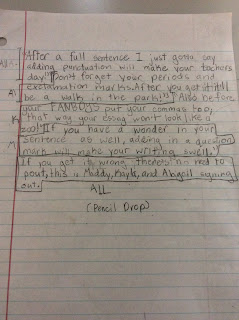 After a full sentence I just gotta say
adding punctuation will make your teachers
day! Don't forget your periods and
exclamation marks. After you get it it'll
be a walk in the park! Also before
your FANBOYS put your commas too,
that way your essay won't look like a
zoo! If you have a wonder in your
sentence as well, adding in a question
mark will make your writing swell.
If you got it wrong theres no need to
pout, this is Maddy, Kayla, and Abigail signing
out.
ALL
(Pencil Drop)